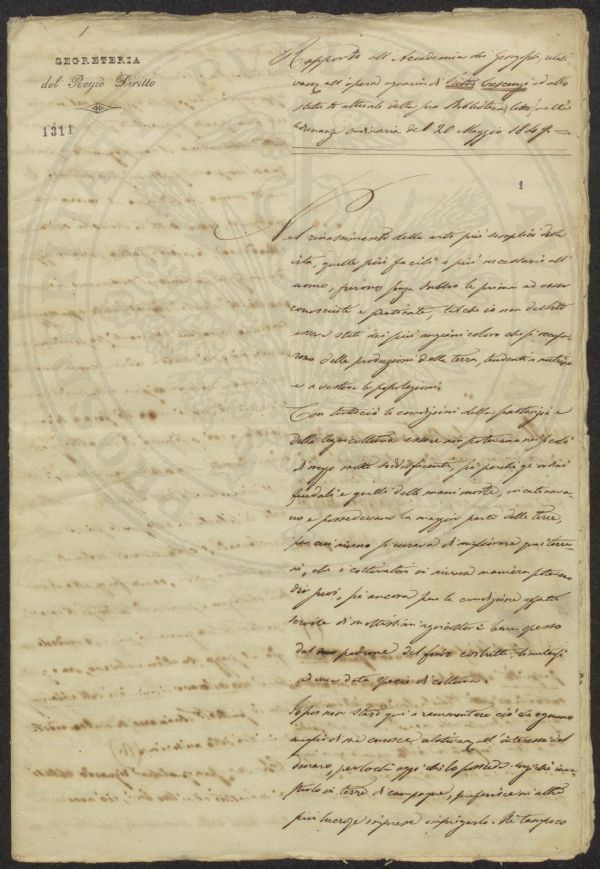 1
SEGRETERIA
del Regio Diritto
1311
Rapporto all'Accademia dei Georgofili, relati
vam. all'opera agraria di Pietro Crescenzi ed allo
stato attuale della sua Biblioteca, letto nella
adunanza ordinaria del 20 Maggio 1849.
1
Nel rinascimento delle arti più semplici della
vita, quelle più facili e più necessarie all'
uomo, furono senza dubbio le prime ad esser
conosciute e praticate, talchè io non dubito
essere stati dei più anziani coloro che si occupa
rono delle produzioni della terra, tendenti a nutrire
e a vestire le popolazioni.
Con tuttociò le condizioni della pastorizia e
della Agricoltura essere non potevano nei secoli
di mezzo molto soddisfacenti, sì perchè gli ordini
feudali e quelli delle mani morte, incatenava
no e possedevano la maggior parte delle terre,
per cui niuno si curava di migliorare quei terre
ni, che i coltivatori in niuna maniera potevano
dei pesi, sì ancora per la condizione affatto
servile di moltissimi agricoltori e bene spesso
dal padrone del fondo costretti, limitarsi
ad una data specie di coltura.
Io poi non starò qui a rammentare ciò che ognuno
meglio di me conosce relativam. all'interesse del
denaro, perlochè oggi chi lo possiede anzichè inve
stirlo in terre di campagne, preferisce in altre
più lucrose imprese impiegarlo. Nè tampoco